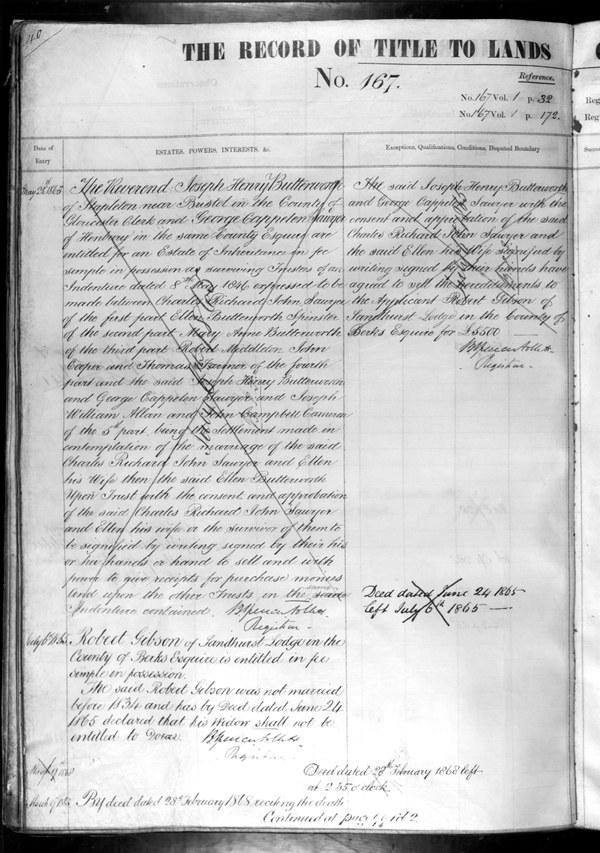 THE RECORD OF TITLE TO LANDS
No. 167.
Reference.
No. 167 Vol. 1 p. 32
No. 167 Vol. 1 p. 172.
Date of Entry
ESTATES, POWERS, INTERESTS, &c.
Exceptions, Qualifications, Conditions, Disputed Boundary
May 26th 1865
The Reverend Joseph Henry Butterworth
of Stapleton near Bristol in the County of
Gloucester Clerk and George Cappelen Sawyer
of Henbury in the same County Esquire are
entitled for an Estate of Inheritance in fee
simple in possession as surviving Trustees of an
Indenture dated 8th 1846 expressed to be
made between Charles Richard John Sawyer
of the first part Ellen Butterworth Spinster
of the second part Mary Anne Butterworth
of the third part Robert Myddleton John
Cooper and Thomas Farmer of the fourth
part and the said Joseph Henry Butterworth
and George Cappelen Sawyer and Joseph
William Allan and John Campbell Cameron
of the 5th part being the Settlement made in
contemplation of the marriage of the said
Charles Richard John Sawyer and Ellen
his Wife then the said Ellen Butterworth
Upon Trust with the consent and approbation
of the said Charles Richard John Sawyer
and Ellen his wife or the survivor of them to
be signified by writing signed by their his
or her hands or hand to sell and with
power to give receipts for purchase moneys
and upon the other Trusts in the said
Indenture contained.
Registrar
The said Joseph Henry Butterworth
and George Cappelen Sawyer with the
consent and approbation of the said
Charles Richard John Sawyer and
the said Ellen his Wife signified by
writing signed by their hands have
agreed to sell the hereditaments to
the Applicant Robert Gibson of
Sandhurst Lodge in the County of
Berks Esquire for £5500
Registrar
Deed dated June 24 1865
left July 6th 1865
July 6th 1865
Robert Gibson of Sandhurst Lodge in the
County of Berks Esquire is entitled in fee
simple in possession.
The said Robert Gibson was not married
before 1834 and has by Deed dated June 24
1865 declared that his widow shall not be
entitled to Dower.
Registrar
Deed dated 28th February 1868 left
at 2.35 o'clock
By deed dated 28th February 1868 reciting the death
Continued at